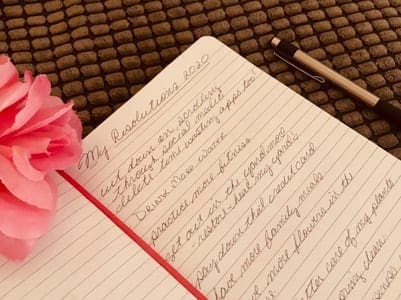 My Resolutions 2020
cut down on scrolling
through social media
delete time wasting apps too
Drink More Water
practice more fitness
get out in the yard and
restore + heal my yards
pay down that credit card
have more family meals
more flowers in the
better care of my plants
clean